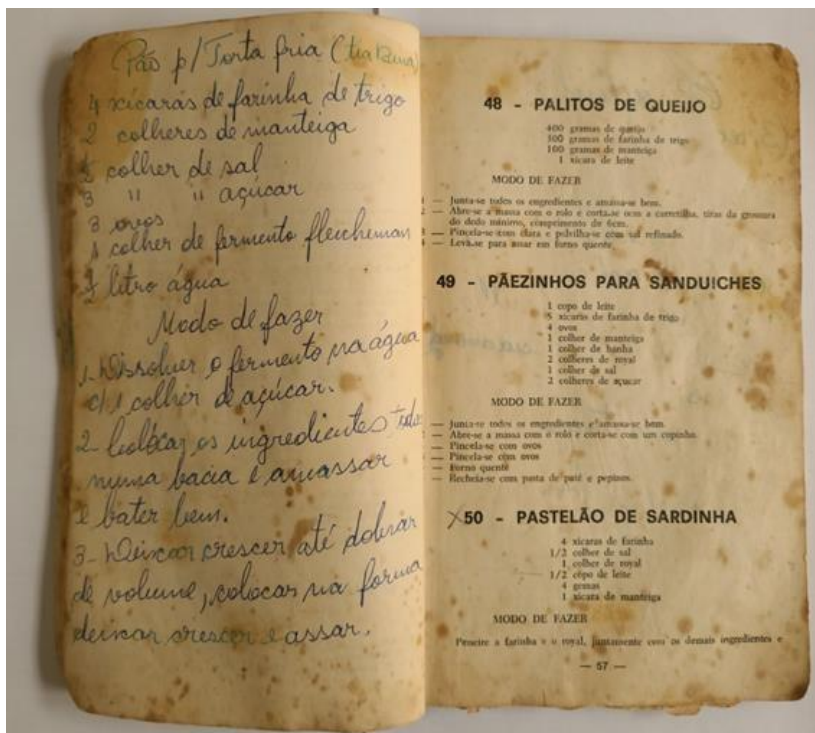 Pão p/ Torta fria (tia
4 xícaras de farinha de trigo
2 colheres de manteiga
colher de sal
3 " " açúcar
3 ovos
1 colher de fermento fleicheman
litro água
Modo de fazer
1- Dissolver o fermento na água
c/ 1 colher de açúcar.
2- Colocar os ingredientes todos
numa bacia e amassar
e bater bem.
3- Deixar crescer até dobrar
de volume, colocar na forma
deixar crescer e assar.
48 - PALITOS DE QUEIJO
400 gramas de queijo
500 gramas de farinha de trigo
100 gramas de manteiga
1 xícara de leite
MODO DE FAZER
— Junta-se todos os engredientes e amassa-se bem.
— Abre-se a massa com o rolo e corta-se com a carretilha, tiras da grossura
do dedo mínimo, comprimento de 6cm.
— Pincela-se com clara e polvilha-se com sal refinado.
— Leva-se para assar em forno quente.
49 - PÃEZINHOS PARA SANDUICHES
1 copo de leite
5 xícaras de farinha de trigo
4 ovos
1 colher de manteiga
1 colher de banha
2 colheres de royal
1 colher de sal
2 colheres de açucar
MODO DE FAZER
— Junta-se todos os engredientes e amassa-se bem.
— Abre-se a massa com o rolo e corta-se com um copinho.
— Pincela-se com ovos
— Pincela-se com ovos
— Forno quente
— Recheia-se com pasta de paté e pepinos.
X50 - PASTELÃO DE SARDINHA
4 xícaras de farinha
1/2 colher de sal
1 colher de royal
1/2 copo de leite
4 gemas
1 xícara de manteiga
MODO DE FAZER
Peneire a farinha e o royal, juntamente com os demais ingredientes e
— 57 —